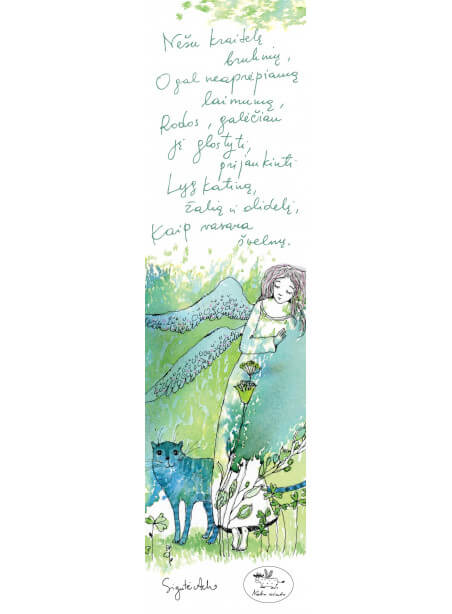 Nešu kraitelę
bruknių,
O gal neaprėpiamą
laimumą,
Rodos, galėčiau
jį glostyti,
prijaukinti
Lyg katiną,
žalią ir didelį,
Kaip vasara
švelnų.
Sigutė Ach